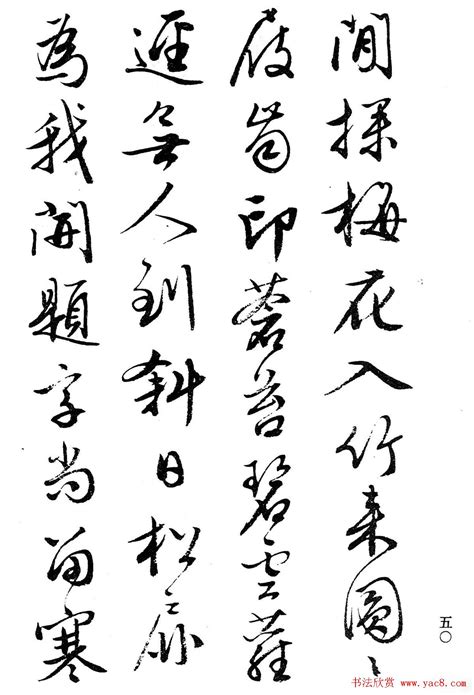 閒探梅花入竹來圓〻
屐齒印蒼苔碧雲蘿
逕無人到斜日松扉
為我開題字尚留寒
五〇
书法欣赏 www.yac8.com